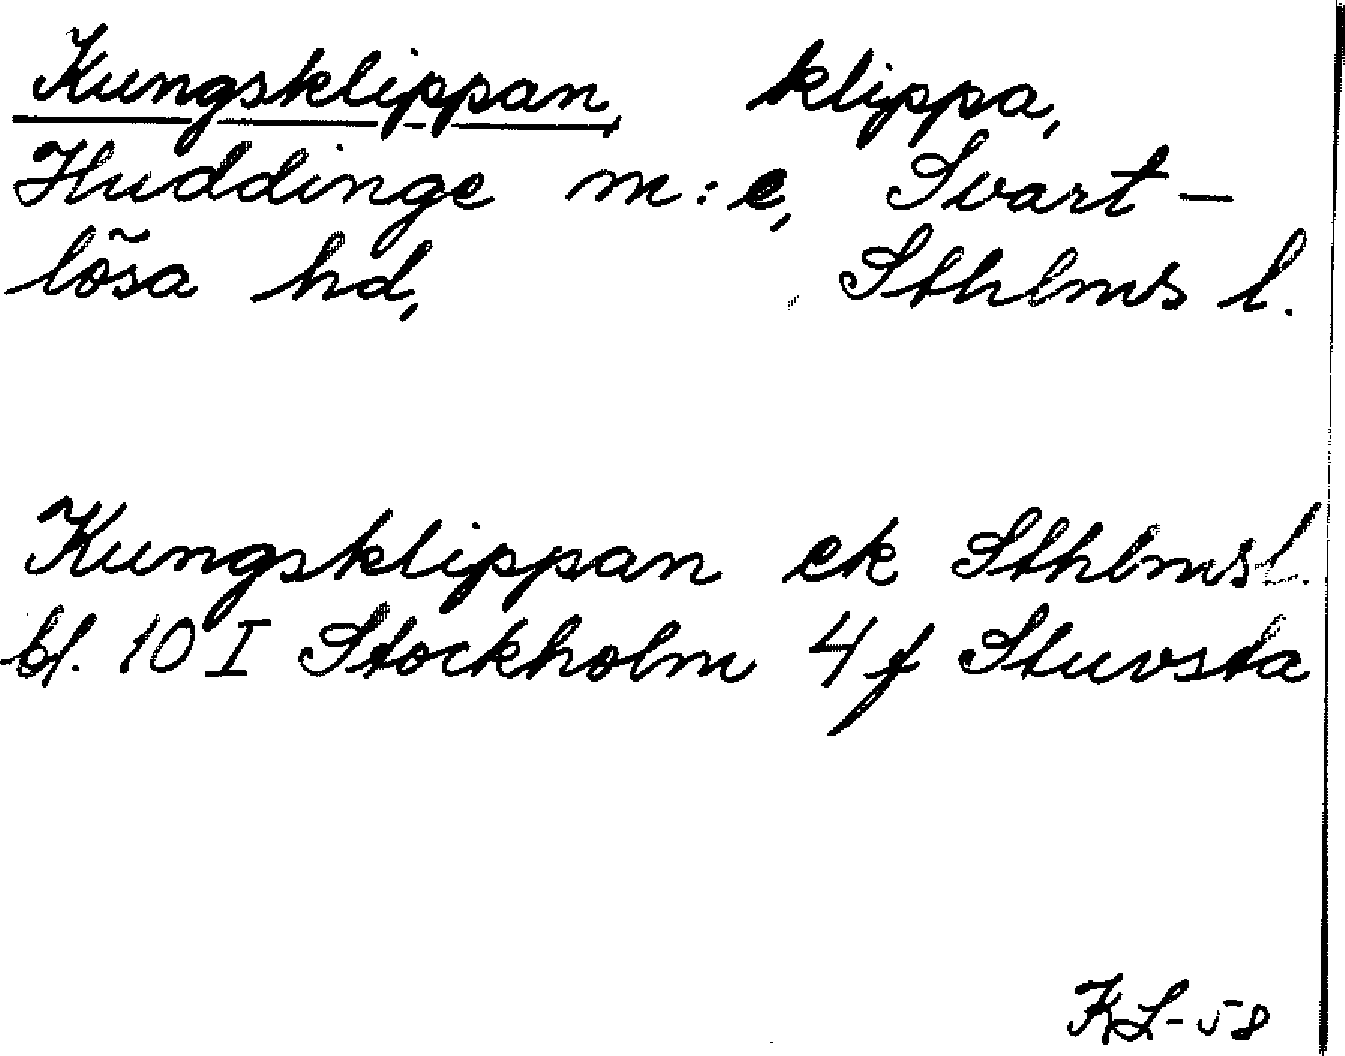 Kungsklippan, klippa,
Huddinge m:e, Svart-
lösa hd, Sthlms l.
Kungsklippan ek Sthlms l.
bl. 10 I Stockholm 4 f Stuvsta
KL-58